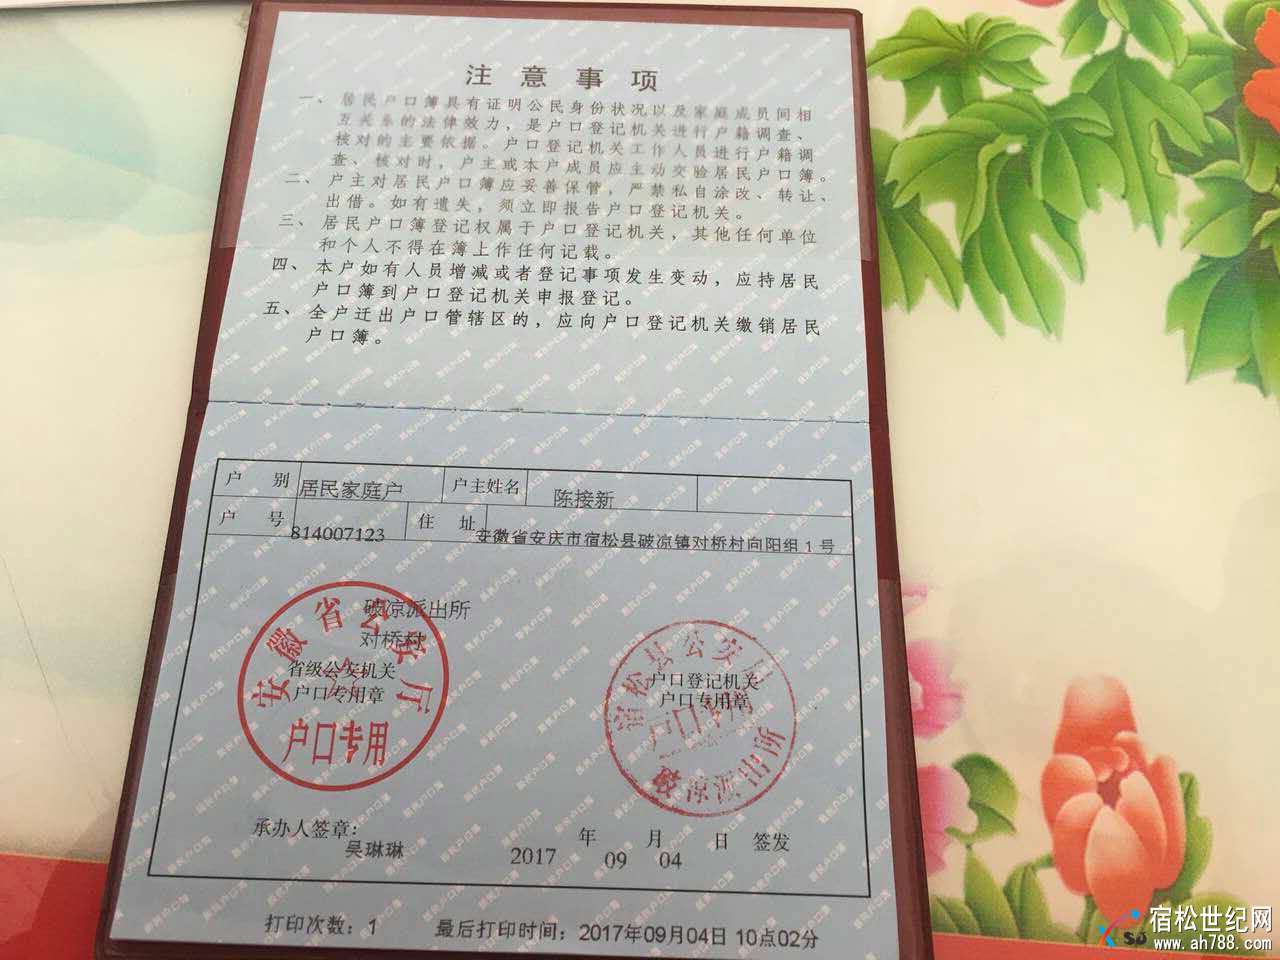 注意事项
一、居民户口簿具有证明公民身份状况以及家庭成员间相
互关系的法律效力，是户口登记机关进行户籍调查、
核对的主要依据。户口登记机关工作人员进行户籍调
查、核对时，户主或本户成员应主动交验居民户口簿。
二、户主对居民户口簿应妥善保管，严禁私自涂改、转让、
出借。如有遗失，须立即报告户口登记机关。
三、居民户口簿登记权属于户口登记机关，其他任何单位
和个人不得在簿上作任何记载。
四、本户如有人员增减或者登记事项发生变动，应持居民
户口簿到户口登记机关申报登记。
五、全户迁出户口管辖区的，应向户口登记机关缴销居民
户口簿。
户别 居民家庭户 户主姓名 陈接新
户号 814007123 住址 安徽省安庆市宿松县破凉镇对桥村向阳组1号
破凉派出所
对桥村
省级公安机关
户口专用章
安徽省公安厅
户口专用
户口登记机关
户口专用章
宿松县公安局
户口专用
破凉派出所
承办人签章：
吴琳琳
年 月 日 签发
2017 09 04
打印次数：1 最后打印时间：2017年09月04日 10点02分
宿松世纪网
www.ah788.com